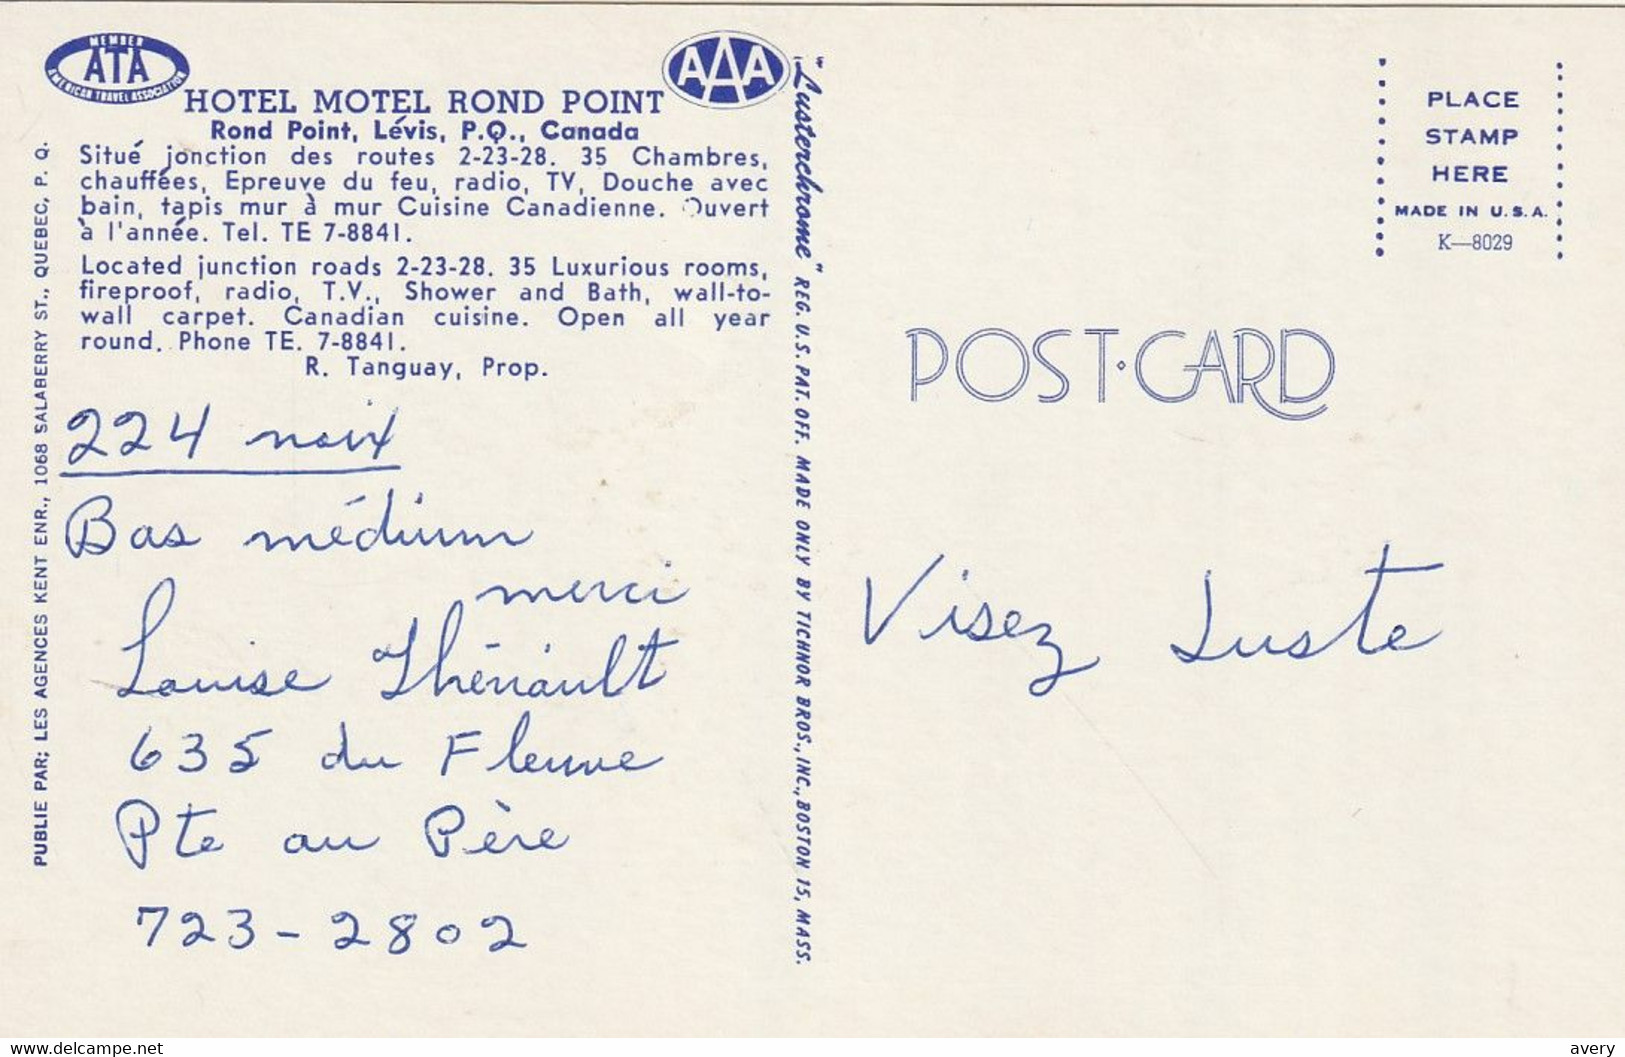 MEMBER
ATA
AMERICAN TRAVEL ASSOCIATION
AAA
HOTEL MOTEL ROND POINT
Rond Point, Lévis, P.Q., Canada
Situé jonction des routes 2-23-28. 35 Chambres,
chauffées, Epreuve du feu, radio, TV, Douche avec
bain, tapis mur à mur Cuisine Canadienne. Ouvert
à l'année. Tel. TE 7-8841.
Located junction roads 2-23-28. 35 Luxurious rooms,
fireproof, radio, T.V., Shower and Bath, wall-to-
wall carpet. Canadian cuisine. Open all year
round. Phone TE. 7-8841.
R. Tanguay, Prop.
224 noix
Bas médium
merci
Louise Thériault
635 du Fleuve
Pte au Père
723-2802
PUBLIE PAR; LES AGENCES KENT ENR., 1068 SALABERRY ST., QUEBEC, P. Q.
"Lusterchrome" REG. U.S. PAT. OFF. MADE ONLY BY TICHNOR BROS., INC., BOSTON 15, MASS.
PLACE
STAMP
HERE
MADE IN U.S.A.
K—8029
POST·CARD
Visez Juste
www.delcampe.net
avery